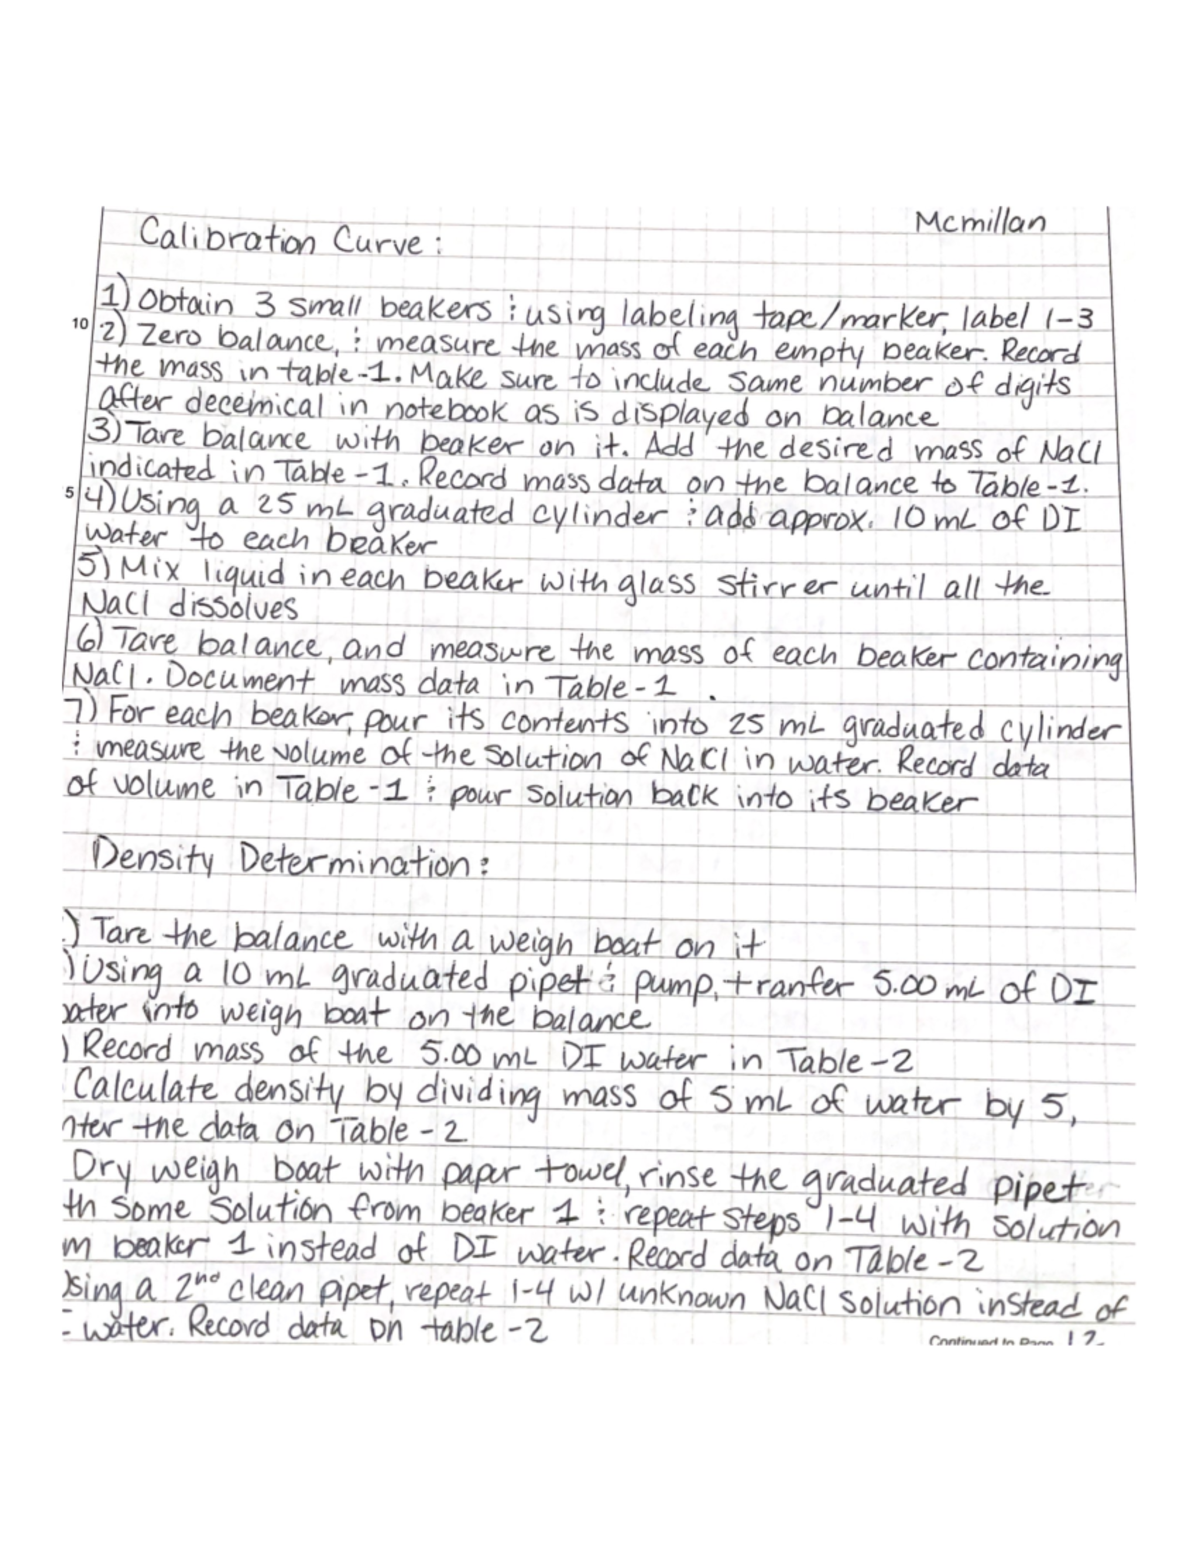 Mcmillan
Calibration Curve:
1) Obtain 3 small beakers & using labeling tape/marker, label 1-3
10 2) Zero balance, & measure the mass of each empty beaker. Record
the mass in table-1. Make sure to include same number of digits
after decemical in notebook as is displayed on balance
3) Tare balance with beaker on it. Add the desired mass of NaCl
indicated in Table-1. Record mass data on the balance to Table-1.
5 4) Using a 25 mL graduated cylinder & add approx. 10 mL of DI
water to each beaker
5) Mix liquid in each beaker with glass stirrer until all the
NaCl dissolves
6) Tare balance, and measure the mass of each beaker containing
NaCl. Document mass data in Table-1.
7) For each beaker, pour its contents into 25 mL graduated cylinder
& measure the volume of the solution of NaCl in water. Record data
of volume in Table-1 & pour solution back into its beaker
Density Determination:
) Tare the balance with a weigh boat on it
) Using a 10 mL graduated pipet & pump, tranfer 5.00 mL of DI
ater into weigh boat on the balance
) Record mass of the 5.00 mL DI water in Table-2
Calculate density by dividing mass of 5 mL of water by 5,
nter the data on Table-2
Dry weigh boat with paper towel, rinse the graduated pipeter
th some solution from beaker 1 & repeat steps 1-4 with solution
m beaker 1 instead of DI water. Record data on Table-2
sing a 2nd clean pipet, repeat 1-4 w/ unknown NaCl solution instead of
- water. Record data on table-2
Continued to Page 12